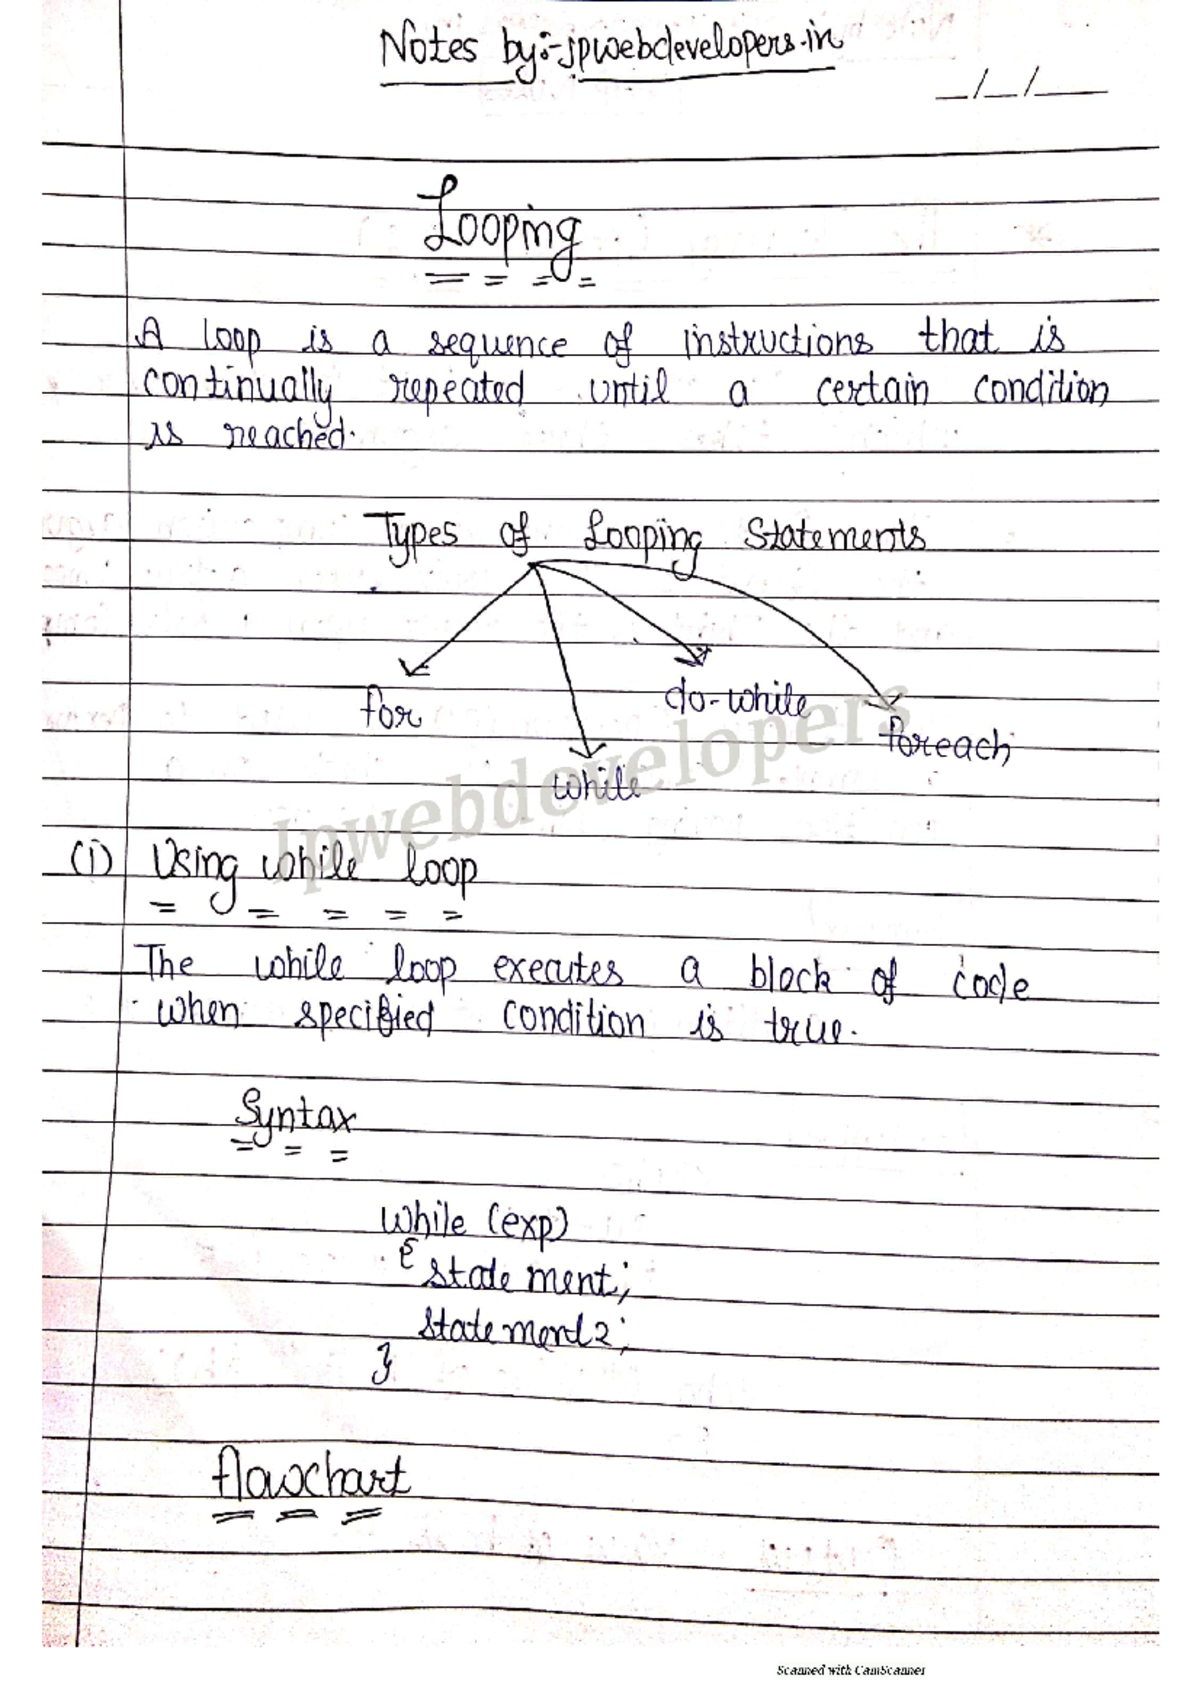 Notes by:-jpwebdevelopers.in
_/_/__
Looping
A loop is a sequence of instructions that is
continually repeated until a certain condition
is reached.
Types of Looping Statements
for
while
do-while
foreach
Jpwebdevelopers
(i) Using while loop
The while loop executes a block of code
when specified condition is true.
Syntax
while (exp)
{ statement;
statement2;
}
flowchart
Scanned with CamScanner